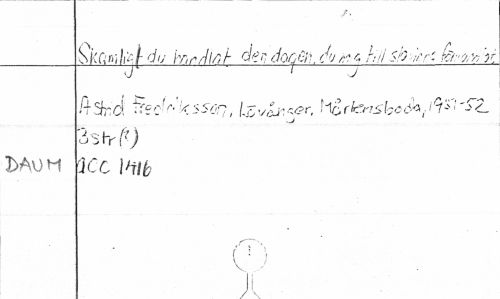 Skamligt du handlat den dagen, du mig till
Astrid Fredriksson, Lövånger, Mårtensboda, 1951-52
3str(?)
DAUM acc 1416